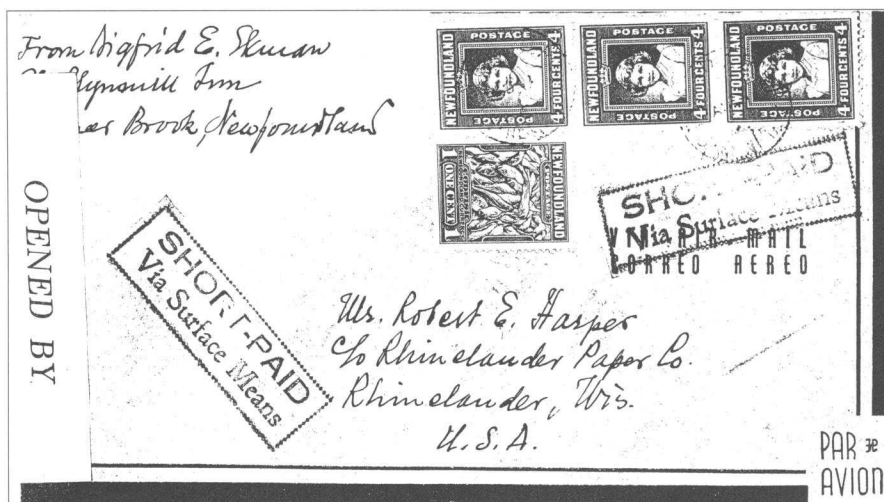 From Sigfrid E. Ekman
Glynmill Inn
Brook, Newfoundland
POSTAGE
NEWFOUNDLAND
4 FOUR CENTS 4
POSTAGE
POSTAGE
NEWFOUNDLAND
4 FOUR CENTS 4
POSTAGE
POSTAGE
NEWFOUNDLAND
4 FOUR CENTS 4
POSTAGE
1 ONE CENT 1
NEWFOUNDLAND
SHORT-PAID
Via Surface Means
VIA AIR MAIL
CORREO AEREO
OPENED BY
SHORT-PAID
Via Surface Means
Mr. Robert E. Harper
c/o Rhinelander Paper Co.
Rhinelander, Wis.
U.S.A.
PAR
AVION